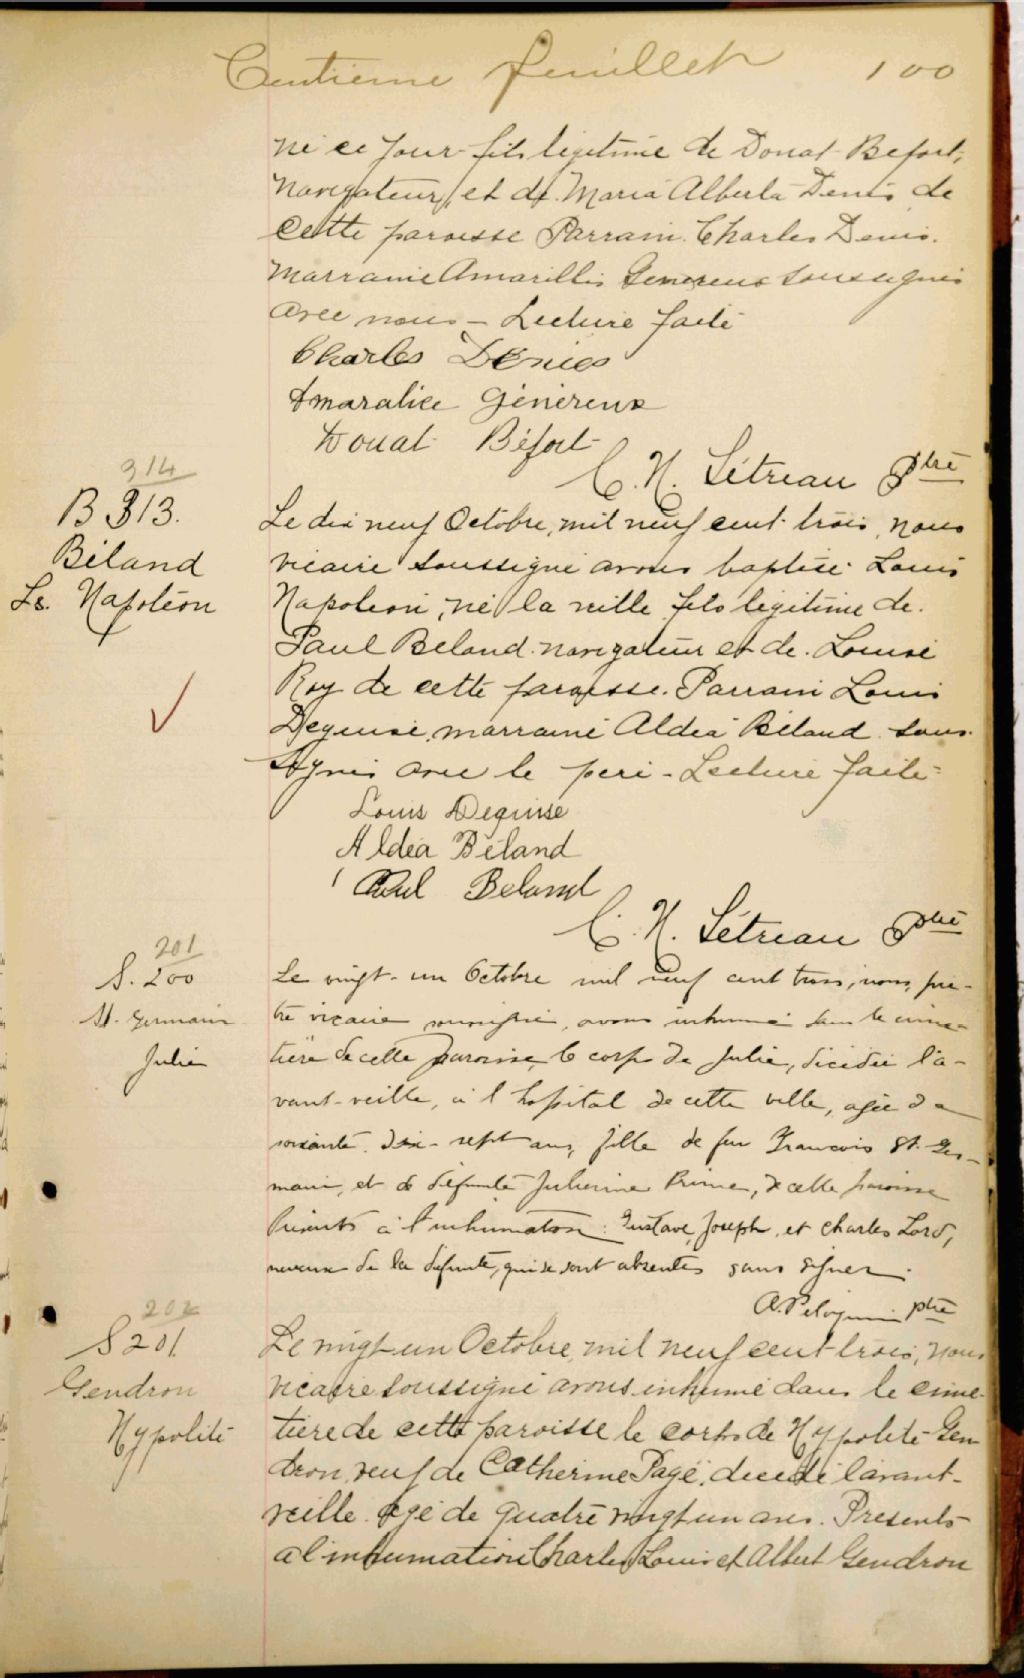 Centième feuillet 100
né ce jour fils légitime de Donat Befort,
Navigateur, et de Maria Alberta Denis de
cette paroisse Parrain Charles Denis.
Marraine Amarillis Genereux soussignés
avec nous – Lecture faite
Charles Denies
Amaralice Généreux
Donat Béfort
C. N. Sétreau Ptre
314
B 313.
Béland
Ls. Napoléon
Le dix neuf Octobre, mil neuf cent trois, nous
vicaire soussigné avons baptisé Louis
Napoleon, né la veille fils légitime de
Paul Beland navigateur et de Louise
Roy de cette paroisse. Parrain Louis
Deguise, marraine Aldéa Béland sous-
signés avec le père - Lecture faite
Louis Deguise
Aldéa Béland
Paul Beland
C. N. Sétreau Ptre
201
S. 200
St. Germain
Julie
Le vingt-un Octobre mil neuf cent trois, nous, prê-
tre vicaire soussigné, avons inhumé dans le cime-
tière de cette paroisse, le corps de Julie, décédée l'a-
vant-veille, à l'hopital de cette ville, agée de
soixante dix-sept ans, fille de feu Francois St. Ger-
main, et de défunte Julienne Prime, de cette paroisse
Présents à l'inhumation: Gustave, Joseph, et Charles Lord,
neveux de la défunte, qui se sont absentés sans signer.
A. Peloquin ptre
202
S 201
Gendron
Hypolite
Le vingt un Octobre, mil neuf cent trois, nous
vicaire soussigné avons inhumé dans le cime-
tière de cette paroisse le corps de Hyppolite Gen-
dron, veuf de Catherine Pagé, décédé l'avant-
veille agé de quatre vingt un ans. Présents
a l'inhumation Charles, Louis et Albert Gendron